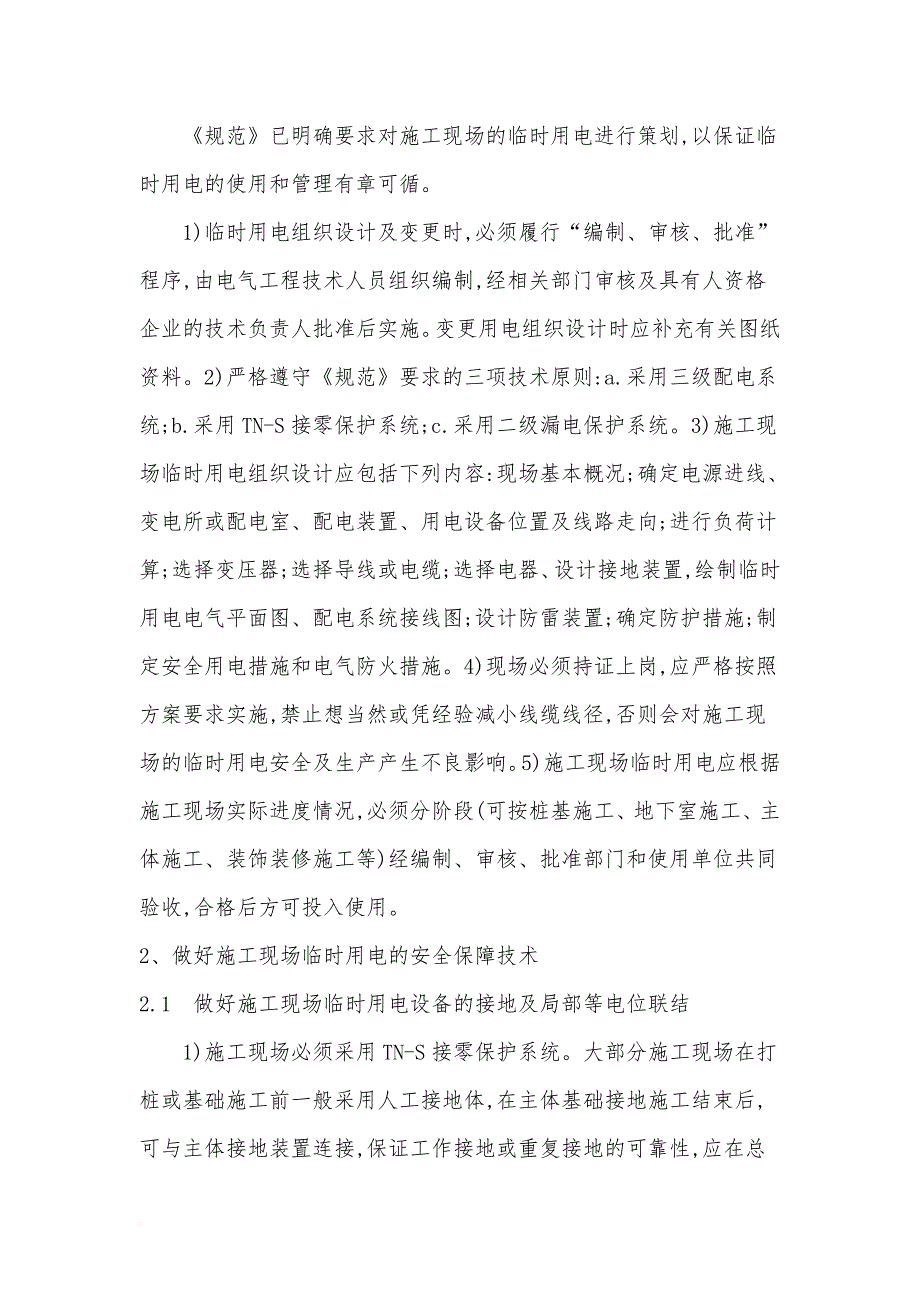 《规范》已明确要求对施工现场的临时用电进行策划,以保证临
时用电的使用和管理有章可循。
1)临时用电组织设计及变更时,必须履行“编制、审核、批准”
程序,由电气工程技术人员组织编制,经相关部门审核及具有人资格
企业的技术负责人批准后实施。变更用电组织设计时应补充有关图纸
资料。2)严格遵守《规范》要求的三项技术原则:a.采用三级配电系
统;b.采用 TN-S 接零保护系统;c.采用二级漏电保护系统。3)施工现
场临时用电组织设计应包括下列内容:现场基本概况;确定电源进线、
变电所或配电室、配电装置、用电设备位置及线路走向;进行负荷计
算;选择变压器;选择导线或电缆;选择电器、设计接地装置,绘制临时
用电电气平面图、配电系统接线图;设计防雷装置;确定防护措施;制
定安全用电措施和电气防火措施。4)现场必须持证上岗,应严格按照
方案要求实施,禁止想当然或凭经验减小线缆线径,否则会对施工现
场的临时用电安全及生产产生不良影响。5)施工现场临时用电应根据
施工现场实际进度情况,必须分阶段(可按桩基施工、地下室施工、主
体施工、装饰装修施工等)经编制、审核、批准部门和使用单位共同
验收,合格后方可投入使用。
2、做好施工现场临时用电的安全保障技术
2.1  做好施工现场临时用电设备的接地及局部等电位联结
1)施工现场必须采用 TN-S 接零保护系统。大部分施工现场在打
桩或基础施工前一般采用人工接地体,在主体基础接地施工结束后,
可与主体接地装置连接,保证工作接地或重复接地的可靠性,应在总